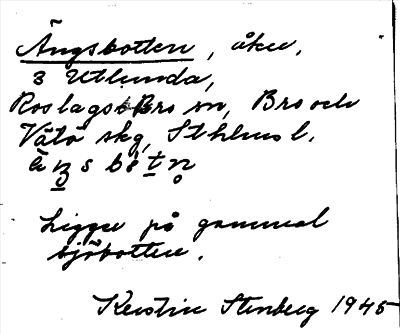 Ängsbotten, åker,
3 Utlunda,
Roslagsbro sn, Bro och
Vätö skg, Sthlms l.
Ligger på gammal
sjöbotten.
Kerstin Stenberg 1945